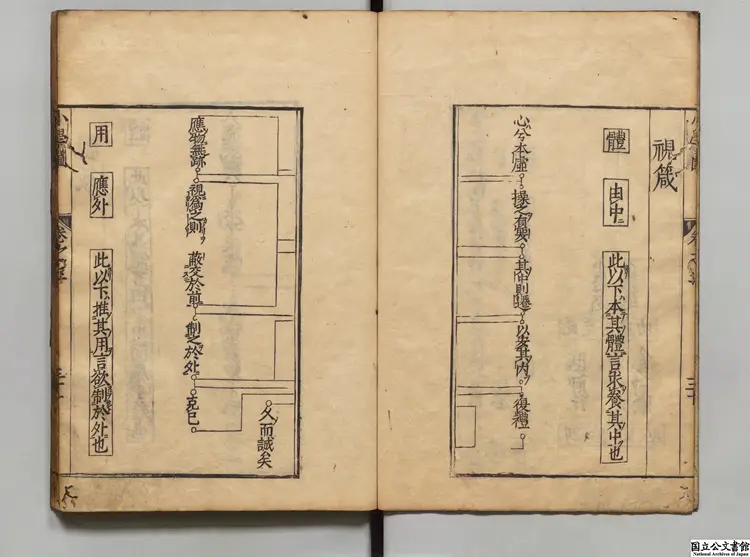 視箴
體 由中 此以下本其體言求養其中也
心兮本虛 操之有要 其中則遷 以安其內 復禮
久而誠矣
應物無跡 視爲之則 蔽交於前 制之於外 克己
用 應外 此以下推其用言欲制於外也
国立公文書館
National Archives of Japan